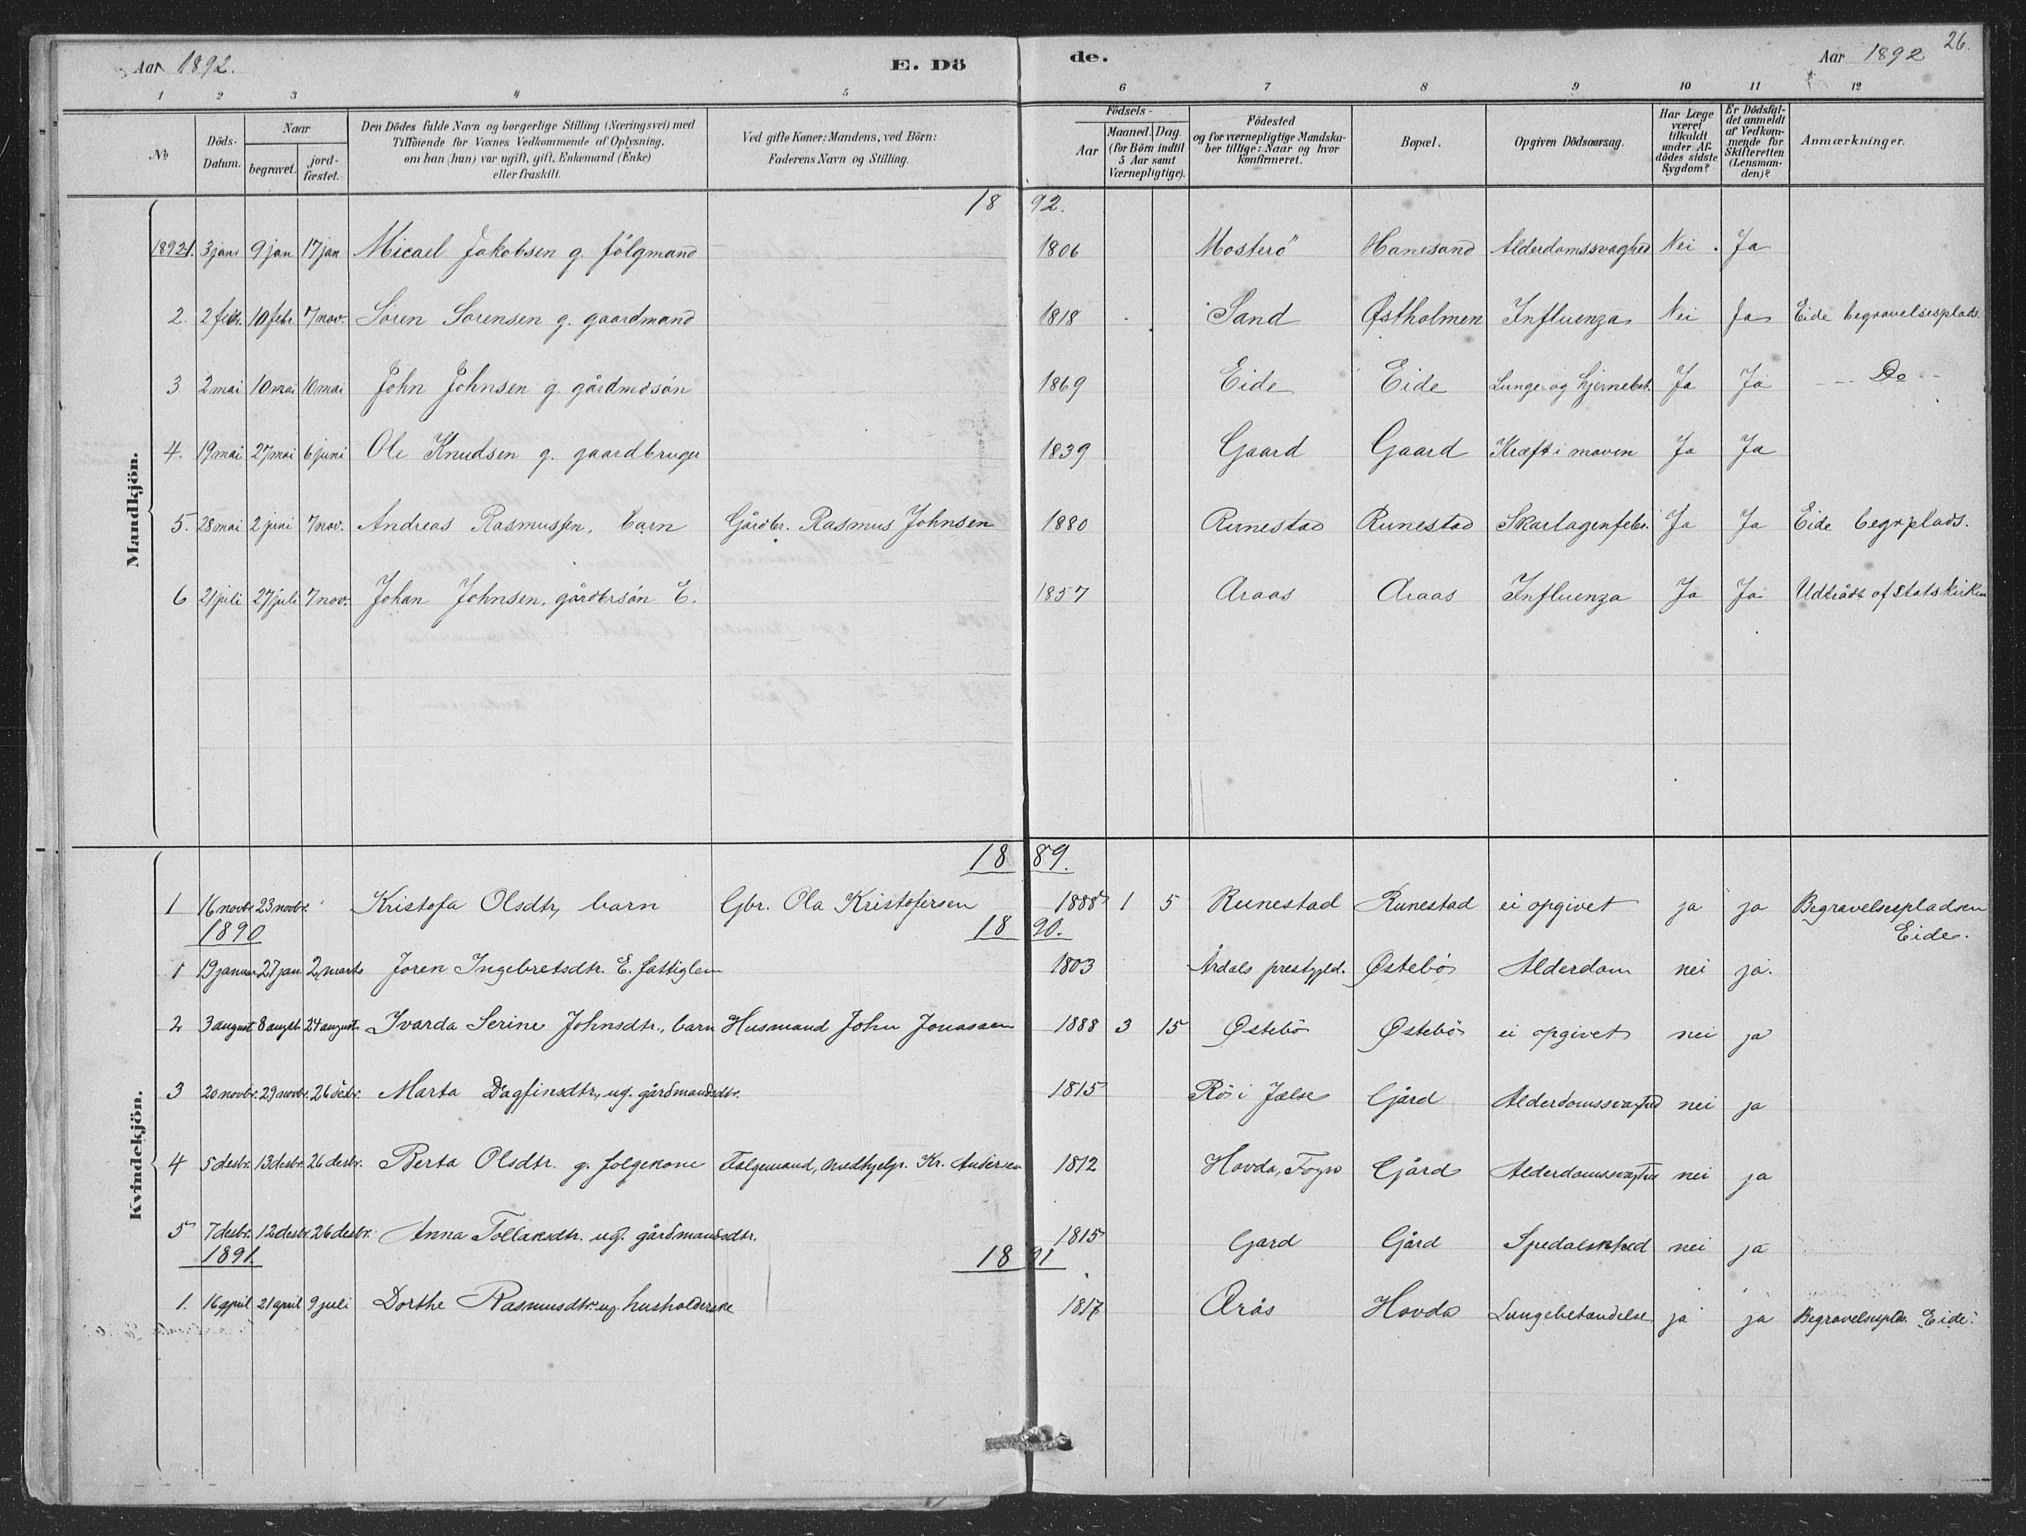 Aar 1892. E. Dö de. Aar 1892 26.
1 2 3 4 5 6 7 8 9 10 11 12
No Döds-Datum. Naar begravet. jord-fæstet. Den Dödes fulde Navn og borgerlige Stilling (Næringsvei) med Tilföiende for Voxnes Vedkommende af Oplysning, om han (hun) var ugift, gift, Enkemand (Enke) eller fraskilt. Ved gifte Koner: Mandens, ved Börn: Faderens Navn og Stilling. Födsels- Aar Maaned. Dag. (for Börn indtil 5 Aar samt Værnepligtige). Födested og for værnepligtige Mandskaber tillige: Naar og hvor konfirmeret. Bopæl. Opgiven Dödsaarsag. Har Læge været tilkaldt under Afdödes sidste Sygdom? Er Dödsfaldet anmeldt af Vedkommende for Skifteretten (Lensmanden)? Anmærkninger.
Mandkjön.
18 92.
1892 1. 3 jan 9 jan 17 jan Micael Jakobsen g. fölgmand 1806 Mosterö Hanesand Alderdomssvaghed Nei. Ja
2. 2 febr. 10 febr 7 nov. Sören Sörensen g. gaardmand 1818 Sand Østholmen Influenza Nei Ja Eide begravelsesplads.
3 2 mai 10 mai 10 mai John Johnsen g. gårdmdsön 1869 Eide Eide Lunge- og hjernebet. Ja Ja - Do -
4. 19 mai 27 mai 6 juni Ole Knudsen g. gaardbruger 1839 Gaard Gaard Kræft i maven Ja Ja
5. 28 mai 2 juni 7 nov. Andreas Rasmussen, barn Gårdbr. Rasmus Johnsen 1880 Runestad Runestad Skarlagenfeber. Ja Ja Eide begrplads.
6 21 juli 27 juli 7 nov. Johan Johnsen, gårdbrsön E. 1857 Araas Araas Influenza Ja Ja Udtrådt af Statskirken
Kvindekjön.
18 89.
1 16 novbr. 23 novbr. Kristofa Olsdtr, barn Gbr. Ola Kristofersen 1888 1 5 Runestad Runestad ei opgivet ja ja Begravelsespladsen Eide.
1890 18 90.
1 19 januar 27 jan. 2 marts Joren Ingebretsdtr. E. fattiglem 1803 Årdals prestgjld. Østebö Alderdom nei ja.
2 3 august 8 augst. 24 august Ivarda Serine Johnsdtr., barn Husmand John Jonassen 1888 3 15 Østebö Østebö ei opgivet nei ja
3 20 novbr. 29 novbr. 26 desbr. Marta Dagfinsdtr, ug. gårdmandsdtr. 1815 Rös i Jælse Gård Alderdomssvaghed nei ja
4 5 desbr. 13 desbr. 26 desbr. Berta Olsdtr. g. folgekone Folgemand, medhjelp. Kr. Andersen 1812 Hovda, Fogn Gård Alderdomssvaghed nei ja
5 7 desbr. 12 desbr. 26 desbr. Anna Tollaksdtr. ug. gårdmandsdtr. 1815 Gard Gård Spedalskhed nei ja
1891. 18 91
1. 16 april 21 april 9 juli Dorthe Rasmusdtr. ug. husholderske 1817 Arås Hovda Lungebetændelse ja ja Begravelsespls. Eide.